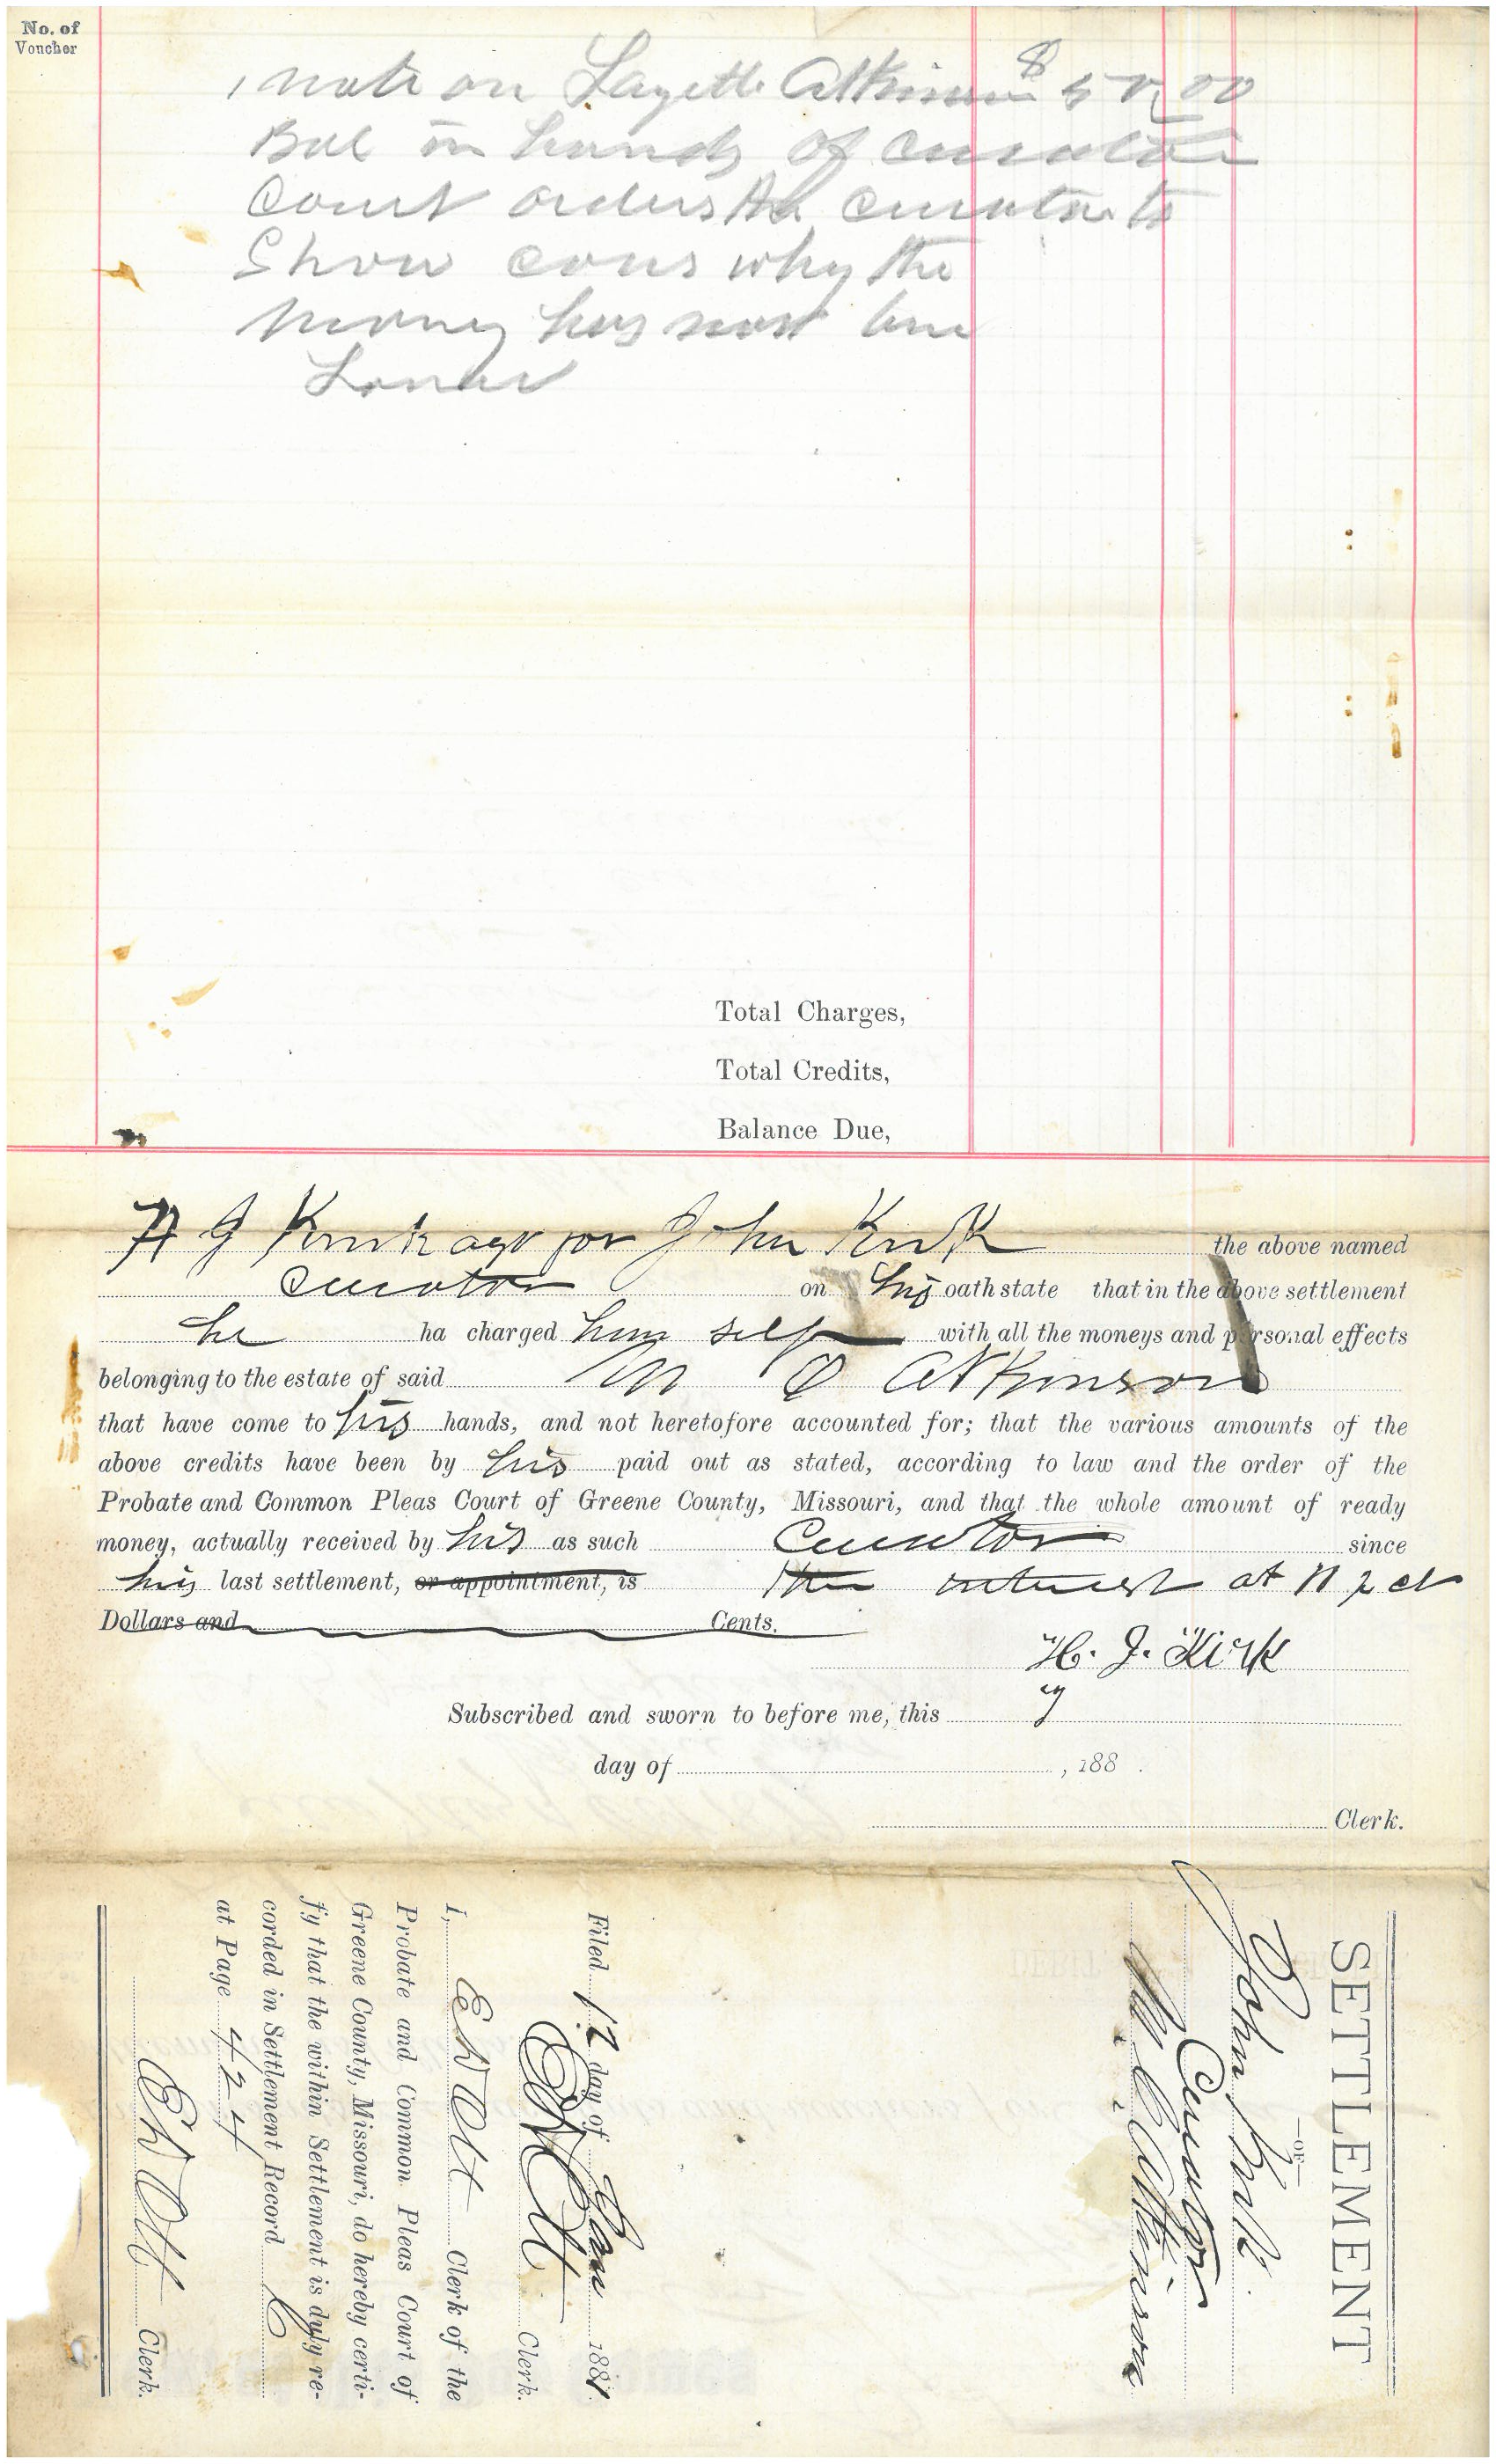 No. of
Voucher
1 note on Layette Atkinson $ 50 00
Bal in hands of curator
Court orders the curator to
Show cous why the
money has not bene
Loned
Total Charges,
Total Credits,
Balance Due,
H J Kirk agt for John Kirk the above named
curator on his oath state that in the above settlement
he ha charged him self with all the moneys and personal effects
belonging to the estate of said M C Atkinson
that have come to his hands, and not heretofore accounted for; that the various amounts of the
above credits have been by his paid out as stated, according to law and the order of the
Probate and Common Pleas Court of Greene County, Missouri, and that the whole amount of ready
money, actually received by his as such Curator since
his last settlement, or appointment, is the interest at
Dollars and Cents.
H. J. Kirk
Subscribed and sworn to before me, this
day of , 188 .
Clerk.
SETTLEMENT
—OF—
John Kirk
Curator
M C Atkinson
Filed 12 day of Jan 1881.
Clerk.
I, Clerk of the
Probate and Common Pleas Court of
Greene County, Missouri, do hereby certi-
fy that the within Settlement is duly re-
corded in Settlement Record C
at Page 424
Clerk.